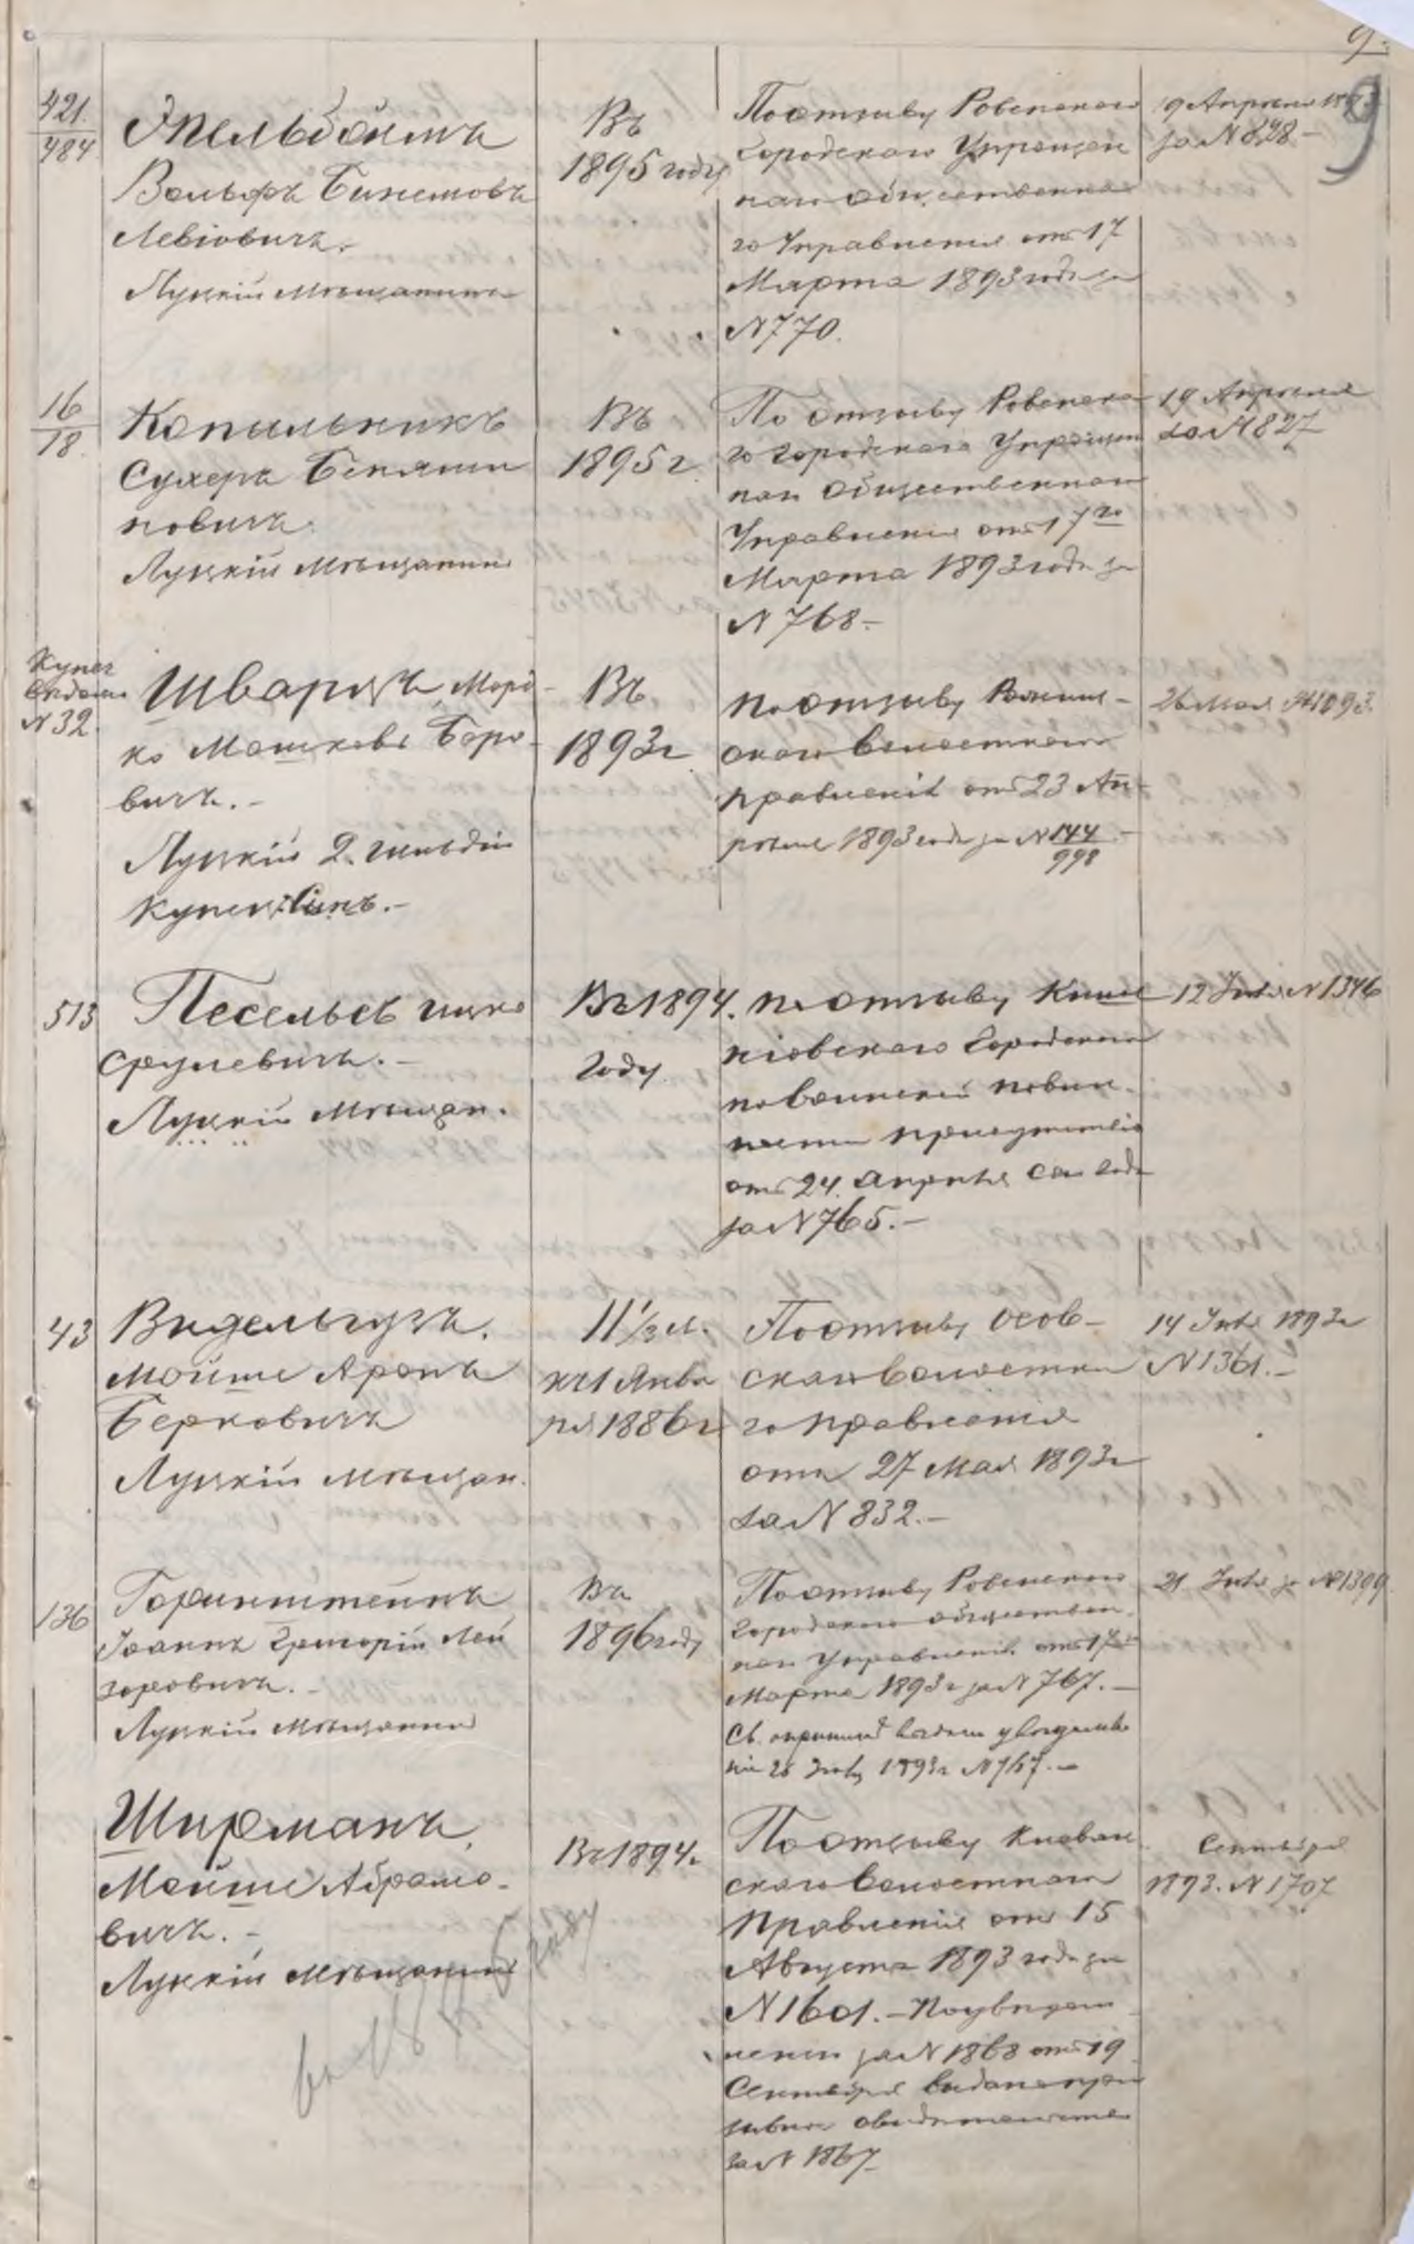 9.
9
421.
484
Эпельбоимъ
Вольфъ Бинемовъ
Левіовичъ.
Луцкій мѣщанинъ
Въ
1895 году
По отзыву Ровенскаго
городскаго Упрощен
наго общественна
го Управленія отъ 17
Марта 1893 года за
№ 770.
19 Апрѣля 1893
за № 828 –
16
18.
Копыльникъ
Сухеръ Беньями
новичъ.
Луцкій мѣщанинъ
Въ
1895 г.
По отзыву Ровенска
го городскаго Упрощен
наго Общественнаго
Управленія отъ 17го
Марта 1893 года за
№ 768.–
19 Апрѣля
за № 827
Купеч
№ 32.
Шварцъ, Морд-
ко Мошковъ Беро-
вичъ.–
Луцкій 2. гильдіи
Купец. Сынъ.–
Въ
1893 г.
по отзыву
скаго Волостнаго
правленія отъ 23 Ап-
рѣля 1893 года за № 144/998 –
26 Мая № 1093.
513
Песельсъ Ицко
Срулевичъ.–
Луцкій Мѣщан.
Въ 1894.
году
по отзыву Киши
ніовскаго Городскаго
по воинской повин-
ности присутствія
отъ 24. Апрѣля сего года
за № 765.–
12 Іюня № 1346
43
Видельгузъ.
Мойше Аронъ
Берковичъ
Луцкій мѣщан.
11½ л.
къ 1 Янва
ря 1886 г.
По отзыву Осов-
скаго Волостна
го правленія
отъ 27 Мая 1893 г
за № 832.–
14 Іюня 1893 г
№ 1361.–
136
Горинштейнъ
Іоаннъ Григорій Лей
зоровичъ.–
Луцкій мѣщанинъ
Въ
1896 году
По отзыву Ровенскаго
городскаго обществен-
наго Управленія отъ 17го
Марта 1893 г за № 767.–
1893 г № 767.–
21 Іюня за № 1399
Ширманъ,
Мойше Абрамо-
вичъ.–
Луцкій мѣщанинъ
Въ 1894 г
году
По отзыву
скаго Волостнаго
Правленія отъ 15
Августа 1893 года за
№ 1601.– По увѣдом
ленію за № 1868 отъ 19
Сентября выдано при
зывное свидѣтельство
за № 1867
Сентября
1893. № 1707